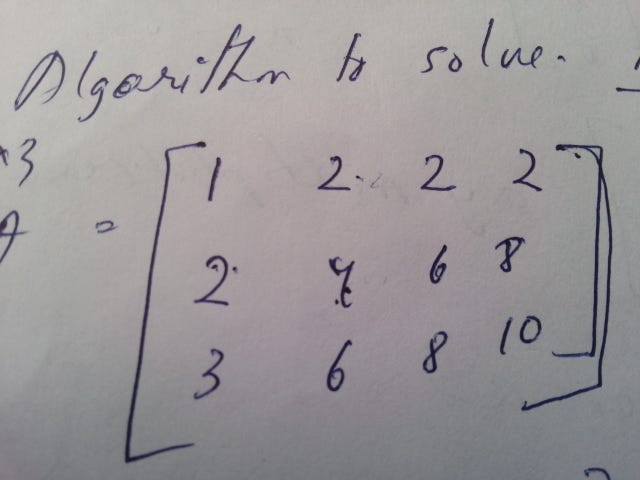 Algorithm to solve.
×3
A = [ 1 2 2 2
2 4 6 8
3 6 8 10 ]